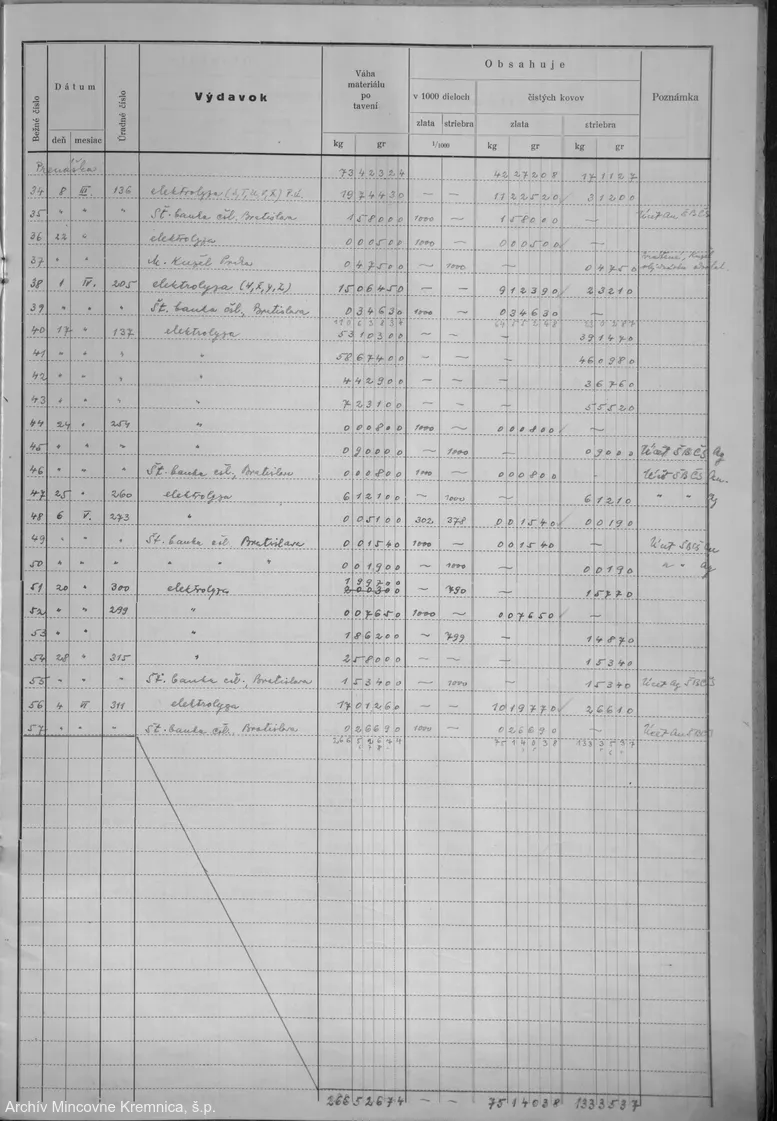 Obsahuje
Bežné číslo | Dátum | Úradné číslo | Výdavok | Váha materiálu po tavení | v 1000 dieloch | čistých kovov | Poznámka
zlata | striebra | zlata | striebra
deň | mesiac | kg | gr | 1/1000 | kg | gr | kg | gr
73 42324 | 42 27208 | 171127
34 8 III. 136 elektrolyza 19 74430 — — 11 22520 31200
35 " " Št. banka čsl. Bratislava 1 58000 1000 — 1 58000 —
36 22 " elektrolyza 0 00500 1000 — 0 00500 —
37 " " M. Kužel Praha 0 47500 — 1000 — 04750
38 1 IV. 205 elektrolyza 15 06450 — — 9 12390 23210
39 " " Št. banka čsl., Bratislava 0 34630 1000 — 0 34630 —
40 17 " 137 elektrolyza 53 10300 — — — 391470
41 " " " " 58 67400 — — — 460980
42 " " " " 4 42900 — — — 36760
43 " " " " 7 23100 — — — 55520
44 24 " 254 " 0 00800 1000 — 0 00800 —
45 " " " " 0 90000 — 1000 — 09000 Účet ŠBČS Ag
46 " " " Št. banka čsl., Bratislava 0 00800 1000 — 0 00800 — Účet ŠBČS Au
47 25 " 260 elektrolyza 6 12100 — 1000 — 61210 " " Ag
48 6 V. 273 " 0 05100 302 378 0 01540 00190
49 " " " Št. banka čsl. Bratislava 0 01540 1000 — 0 01540 — Účet ŠBČS Au
50 " " " " " " 0 01900 — 1000 — 00190 " " Ag
1 99700
51 20 " 300 elektrolyza 2 00300 — 790 — 15770
52 " " 299 " 0 07650 1000 — 0 07650 —
53 " " " 1 86200 — 799 — 14870
54 28 " 315 " 2 58000 — — — 15340
55 " " " Št. banka čsl., Bratislava 1 53400 — 1000 — 15340 Účet Ag ŠBČS
56 4 VI 311 elektrolyza 17 01260 — — 10 19770 26610
57 " " " Št. banka čsl., Bratislava 0 26690 1000 — 0 26690 — Účet Au ŠBČS
266 52674 — — 75 14038 1333537
Archív Mincovne Kremnica, š.p.